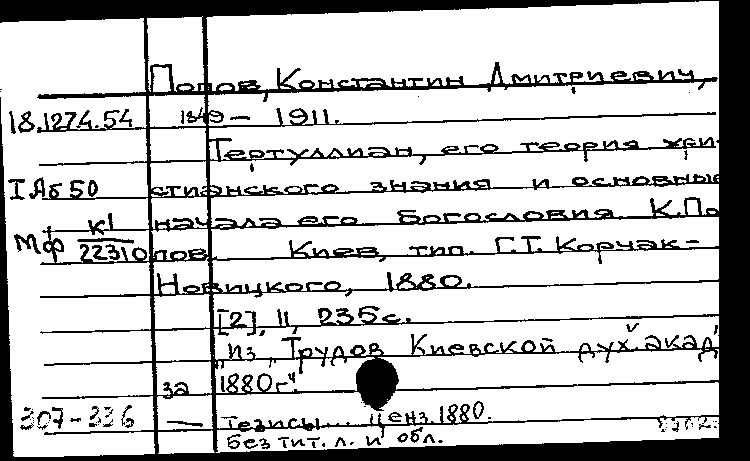 Попов, Константин Дмитриевич,
18.1274.54 1849 – 1911.
Тертуллиан, его теория хри-
I Аб 50 стианского знания и основные
начала его богословия. К. По-
Мф К1/22310 пов. Киев, тип. Г.Т. Корчак-
Новицкого, 1880.
[2], II, 235 с.
„Из „Трудов Киевской дух. акад."
за 1880г."
307-336 — Тезисы... Ценз. 1880.
Без тит. л. и обл.